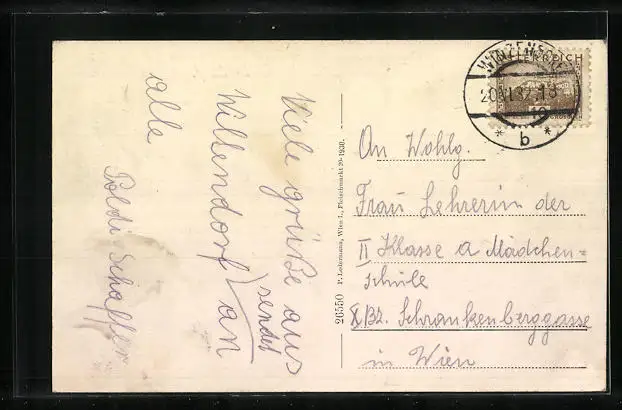 Viele grüße aus
Willendorf sendet an
alle
Poldi Schaffer
26550 P. Ledermann, Wien I., Fleischmarkt 20 - 1930.
ÖSTERREICH
20.VI.32.18
* b *
An Wohlg.
Frau Lehrerin der
II Klasse a Mädchen=
schule
X/Bz. Schrankenberggasse
in Wien